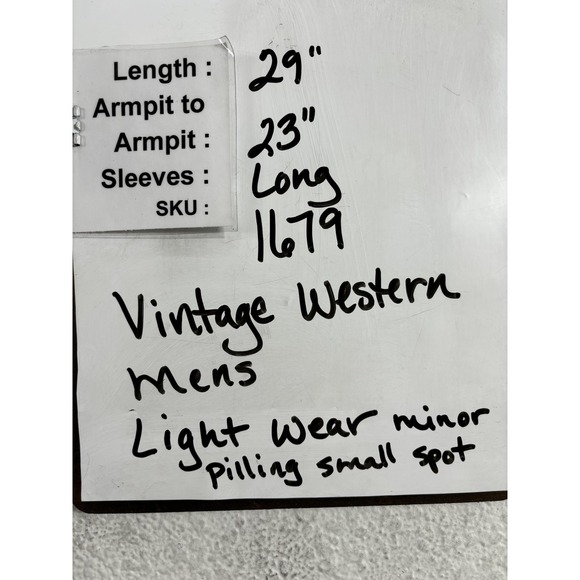 Length : 29"
Armpit to
Armpit : 23"
Sleeves : Long
SKU : 1679
Vintage Western
Mens
Light Wear minor
Pilling small spot